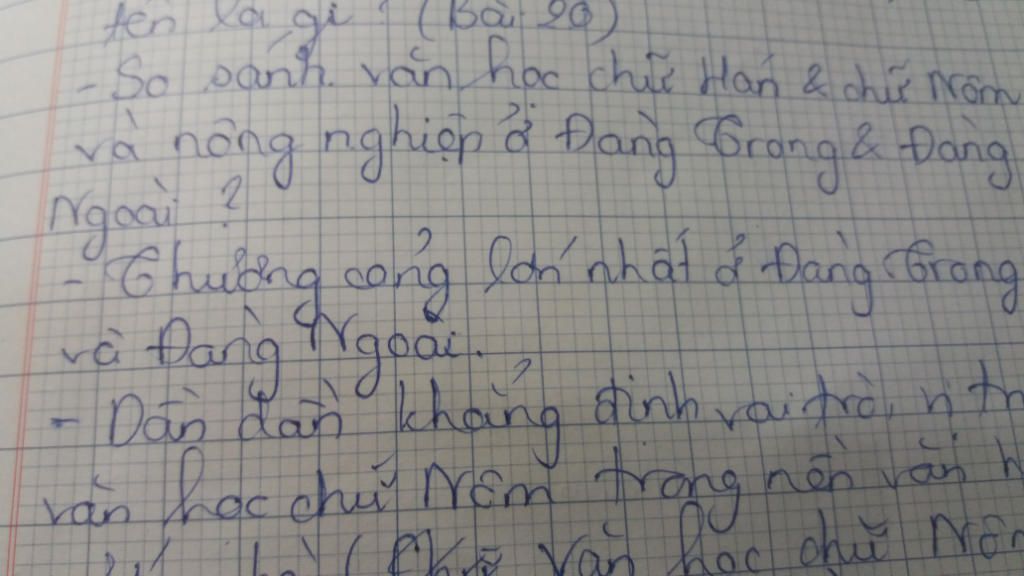 tên là gì? (Bài 20)
- So sánh văn học chữ Hán & chữ Nôm
và nông nghiệp ở Đàng Trong & Đàng
Ngoài?
- Thương cảng lớn nhất ở Đàng Trong
và Đàng Ngoài.
- Dần dần khẳng định vai trò, vị th
văn học chữ Nôm trong nền văn h
Văn học chữ Nôm